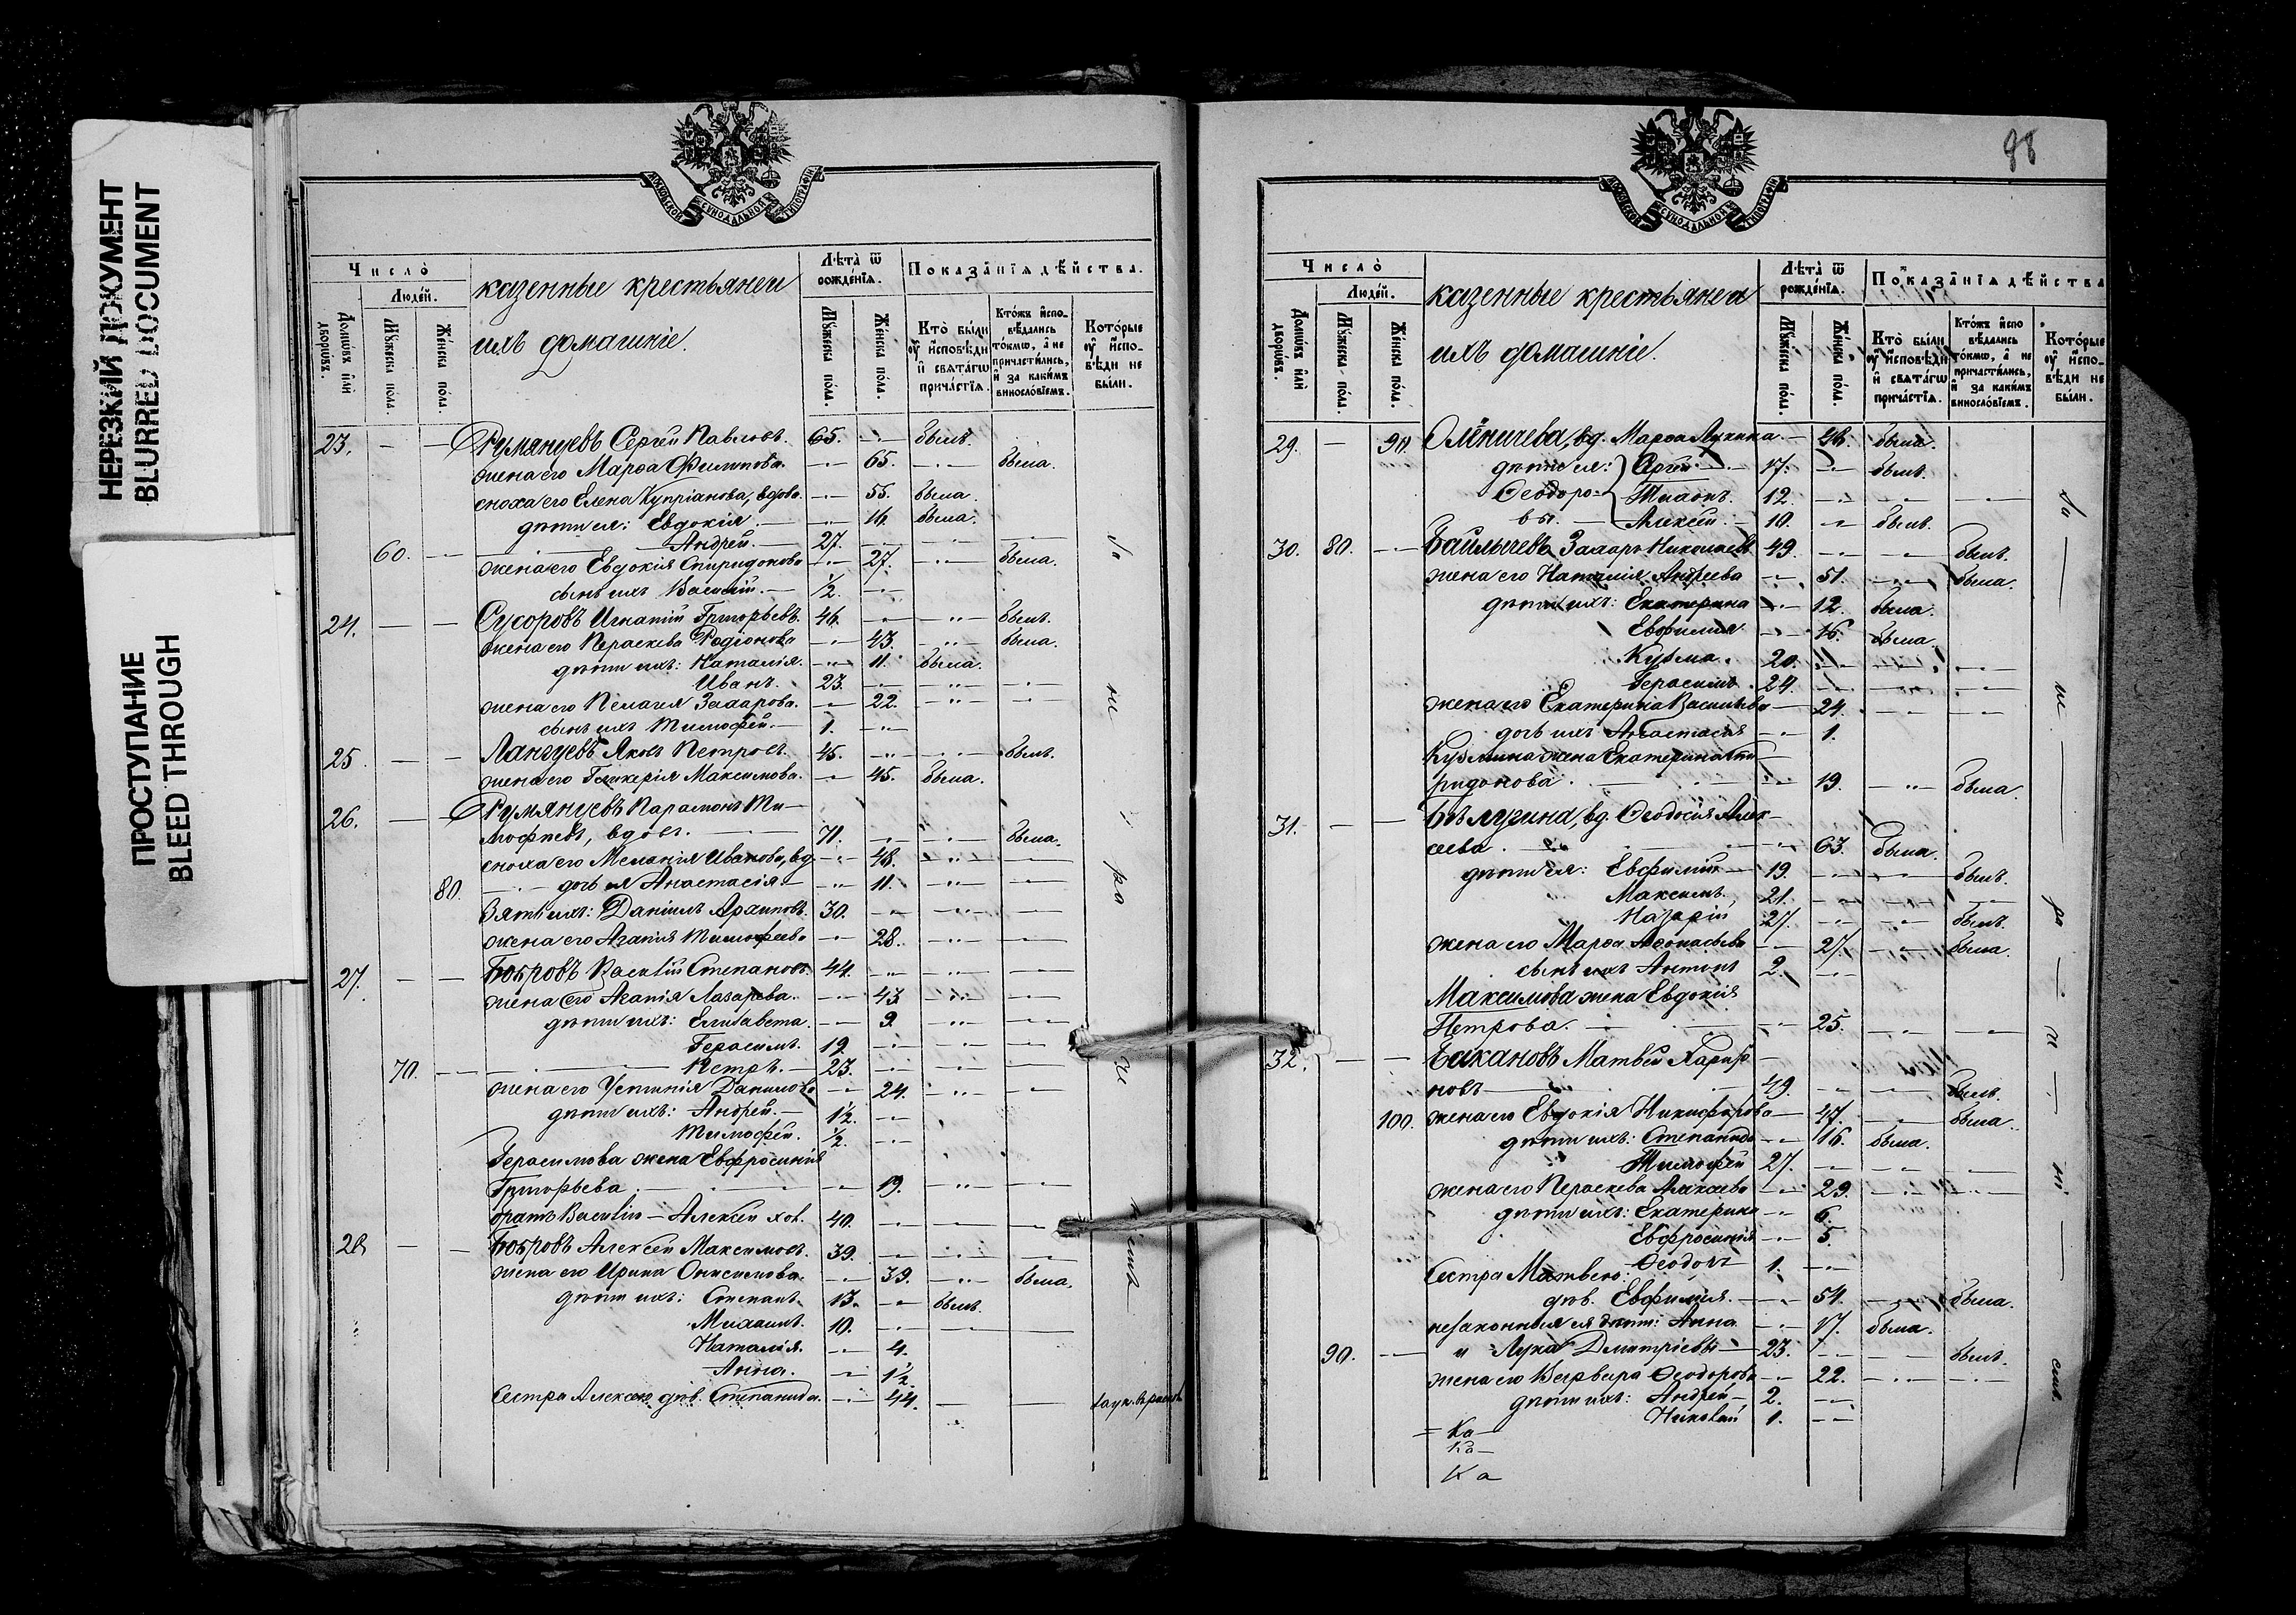 НЕРЕЗКИЙ ДОКУМЕНТ
BLURRED DOCUMENT
ПРОСТУПАНИЕ
BLEED THROUGH
МОСКОВСКОЙ СУНОДАЛЬНОЙ ТИПОГРАФІИ
Число̀
Людей.
Домовъ или дворовъ.
Мужеска пола.
Женска пола.
казенные крестьяне и
ихъ домашніе.
Лѣта ѿ рожденія.
Мужеска пола.
Женска пола.
Показанія дѣйства.
Кто были оу исповѣди и святагѡ причастія.
Ктожъ исповѣдались токмѡ, а не причастились, и за какимъ винословіемъ.
Которые оу исповѣди не были.
23. — — Румянцевъ Сергей Павловъ. 65. — былъ.
жена его Марѳа Филипова. — 65. — была.
сноха его Елена Купріанова, вдова. — 55. была.
дѣти ея: Евдокія. — 16. была.
Андрей. — 27. — — —
60. — жена его Евдокія Спиридонова — 27. — была.
сынъ ихъ Василій. — ½. —
24. — — Сусоровъ Игнатій Григорьевъ. 46. — — былъ.
жена его Параскева Родіонова — 43. — была.
дѣти ихъ: Наталія. — 11. была.
Иванъ. 23. — — —
жена его Пелагея Захарова. — 22. — —
сынъ ихъ Тимофей. — 1. —
25. — — Лангуевъ Яковъ Петровъ. 45. — — былъ.
жена его Гликерія Максимова. — 45. была.
26. — — Румянцевъ Парамонъ Ти—
мофеевъ, вдовъ. — 71. — — была.
сноха его Меланія Иванова, вд. — 48. — —
80. — дочь ея Анастасія. — — 11. — —
Зять ихъ: Даніилъ Архиповъ. 30. — — —
жена его Агапія Тимофеева — 28. — —
27. — — Бобровъ Василій Степановъ. 44. — — —
жена его Агапія Лазарева. — 43 — —
дѣти ихъ: Елисавета. — 9. — —
Герасимъ. 19. — — —
70. — Петръ. — 23. — — —
жена его Устинія Данилова — 24. — —
дѣти ихъ: Андрей. — 1½. —
Тимофей. ½. —
Герасимова жена Евфросинія
Григорьева. — 19. — —
братъ Василія — Алексей хол. 40. — — —
28 — — Бобровъ Алексей Максимовъ. 39. — — —
жена его Ирина Онисимова. — 39. — была.
дѣти ихъ: Степанъ. 13. — былъ.
Михаилъ. 10. — — —
Наталія. — 4.
Анна. — 1½
Сестра Алексея дѣв. Степанида. — 44. — —
88
МОСКОВСКОЙ СУНОДАЛЬНОЙ ТИПОГРАФІИ
Число̀
Людей.
Домовъ или дворовъ.
Мужеска пола.
Женска пола.
казенные крестьяне и
ихъ домашніе.
Лѣта ѿ рожденія.
Мужеска пола.
Женска пола.
Показанія дѣйства
Кто были оу исповѣди и святагѡ причастія.
Ктожъ исповѣдались токмѡ, а не причастились, и за какимъ винословіемъ.
Которые оу исповѣди не были.
29. — 90. Олёничева, вд. Марѳа Лукина. — 48. была.
дѣти ея: Сергей — 17. — былъ.
Ѳеодоро— Тихонъ. 12 — — —
вы. — Алексей. — 10. — былъ.
30. 80. — Байлычевъ Захаръ Николаевъ 49. — — былъ.
жена его Наталія Андреева — 51. — была.
дѣти ихъ: Екатерина — 12. была.
Евфимія — 16. была.
Кузьма. 20. — — —
Герасимъ. 24. — — —
жена его Екатерина Васильева — 24. — —
дочь ихъ Анастасія — 1.
Кузьмина жена Екатерина Спи—
ридонова. — 19. — была.
31. — — Бѣлузина, вд. Ѳеодосія Алек—
сеева. — 63. была.
дѣти ея: Евфимій — 19. — — былъ.
Максимъ. 21. — — —
Назарій 27. — — былъ.
жена его Марѳа Аѳонасьева — 27. — была.
сынъ ихъ Антонъ 2. —
Максимова жена Евдокія
Петрова. — 25. — —
32. — — Бакановъ Матвей Харито—
новъ — 49. — — былъ.
100. жена его Евдокія Никифорова — 47. — была.
дѣти ихъ: Степанида — 16. была.
Тимофей 27. — — —
жена его Параскева Алексеева — 29. — —
дѣти ихъ: Екатерина — 6.
Евфросинія — 5.
Ѳеодоръ 1. —
Сестра Матвея:
дѣв. Евфимія. — 54. — была.
незаконныя ея дѣти: Анна — 17. была.
90. — и Лука Дмитріевы — 23. — — былъ.
жена его Варвара Ѳеодорова — 22. — —
дѣти ихъ: Андрей — 2. —
Николай 1. —
Ка—
Ка—
Ка